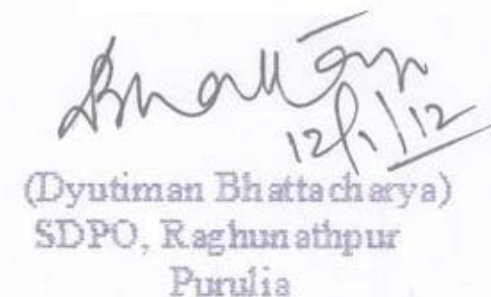 12/1/12
(Dyutiman Bhattacharya)
SDPO, Raghunathpur
Purulia